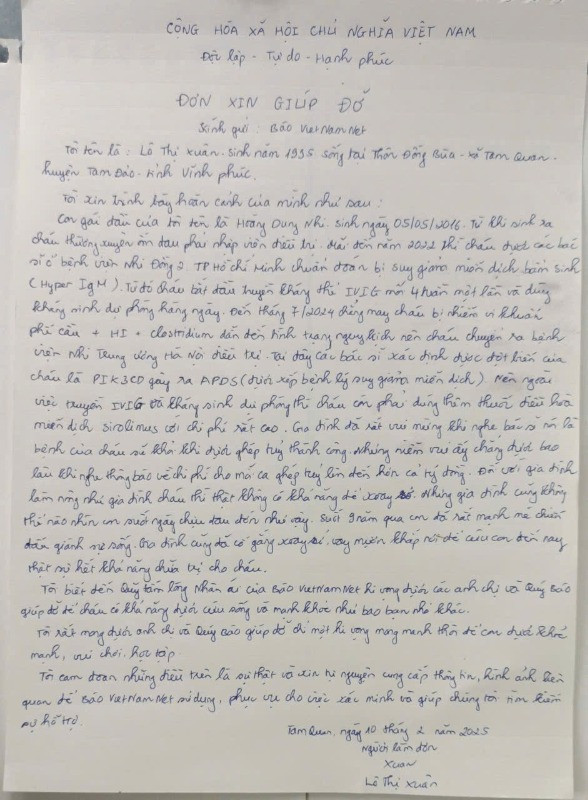 CỘNG HÒA XÃ HỘI CHỦ NGHĨA VIỆT NAM
Độc lập - Tự do - Hạnh phúc
ĐƠN XIN GIÚP ĐỠ
Kính gửi : Báo VietNamNet
Tôi tên là : Lê Thị Xuân. Sinh năm 1995 sống tại Thôn Đồng Bùa - Xã Tam Quan -
huyện Tam Đảo - tỉnh Vĩnh Phúc.
Tôi xin trình bày hoàn cảnh của mình như sau :
Con gái đầu của tôi tên là Hoàng Dung Nhi. Sinh ngày 05/05/2016. Từ khi sinh ra
cháu thường xuyên ốm đau phải nhập viện điều trị. Mãi đến năm 2022 thì cháu được các bác
sĩ ở bệnh viện Nhi Đồng 2 TP Hồ Chí Minh chuẩn đoán bị suy giảm miễn dịch bẩm sinh
(Hyper IgM). Từ đó cháu bắt đầu truyền kháng thể IVIG mỗi 4 tuần một lần và dùng
kháng sinh dự phòng hàng ngày. Đến tháng 7/2024 chẳng may cháu bị nhiễm vi khuẩn
phế cầu + HI + clostridium dẫn đến tình trạng nguy kịch nên cháu chuyển ra bệnh
viện Nhi Trung ương Hà Nội điều trị. Tại đây các bác sĩ xác định được đột biến của
cháu là PIK3CD gây ra APDS (được xếp bệnh lý suy giảm miễn dịch). Nên ngoài
việc truyền IVIG và kháng sinh dự phòng thì cháu còn phải dùng thêm thuốc điều hòa
miễn dịch sirolimus với chi phí rất cao. Gia đình đã rất vui mừng khi nghe bác sĩ nói là
bệnh của cháu sẽ khỏi khi được ghép tuỷ thành công. Nhưng niềm vui ấy chẳng được bao
lâu khi nghe thông báo về chi phí cho mã ca ghép tuỷ lên đến hơn cả tỷ đồng. Đối với gia đình
làm nông như gia đình cháu thì thật không có khả năng để xoay sở. Nhưng gia đình cũng không
thể nào nhìn con suốt ngày chịu đau đớn như vậy. Suốt 9 năm qua con đã rất mạnh mẽ chiến
đấu giành sự sống. Gia đình cũng đã cố gắng xoay sở, vay mượn khắp nơi để cứu con đến nay
thật sự hết khả năng chữa trị cho cháu.
Tôi biết đến Quỹ tấm lòng Nhân ái của Báo VietNamNet hi vọng được các anh chị và Quý Báo
giúp đỡ để cháu có khả năng được cứu sống và mạnh khoẻ như bao bạn nhỏ khác.
Tôi rất mong được anh chị và Quý Báo giúp đỡ dù chỉ một hi vọng mong manh thôi để con được khoẻ
mạnh, vui chơi, học tập.
Tôi cam đoan những điều trên là sự thật và xin tự nguyện cung cấp thông tin, hình ảnh liên
quan để Báo VietNamNet sử dụng, phục vụ cho việc xác minh và giúp chúng tôi tìm kiếm
sự hỗ trợ.
Tam Quan, ngày 10 tháng 2 năm 2025
Người làm đơn
Xuân
Lê Thị Xuân